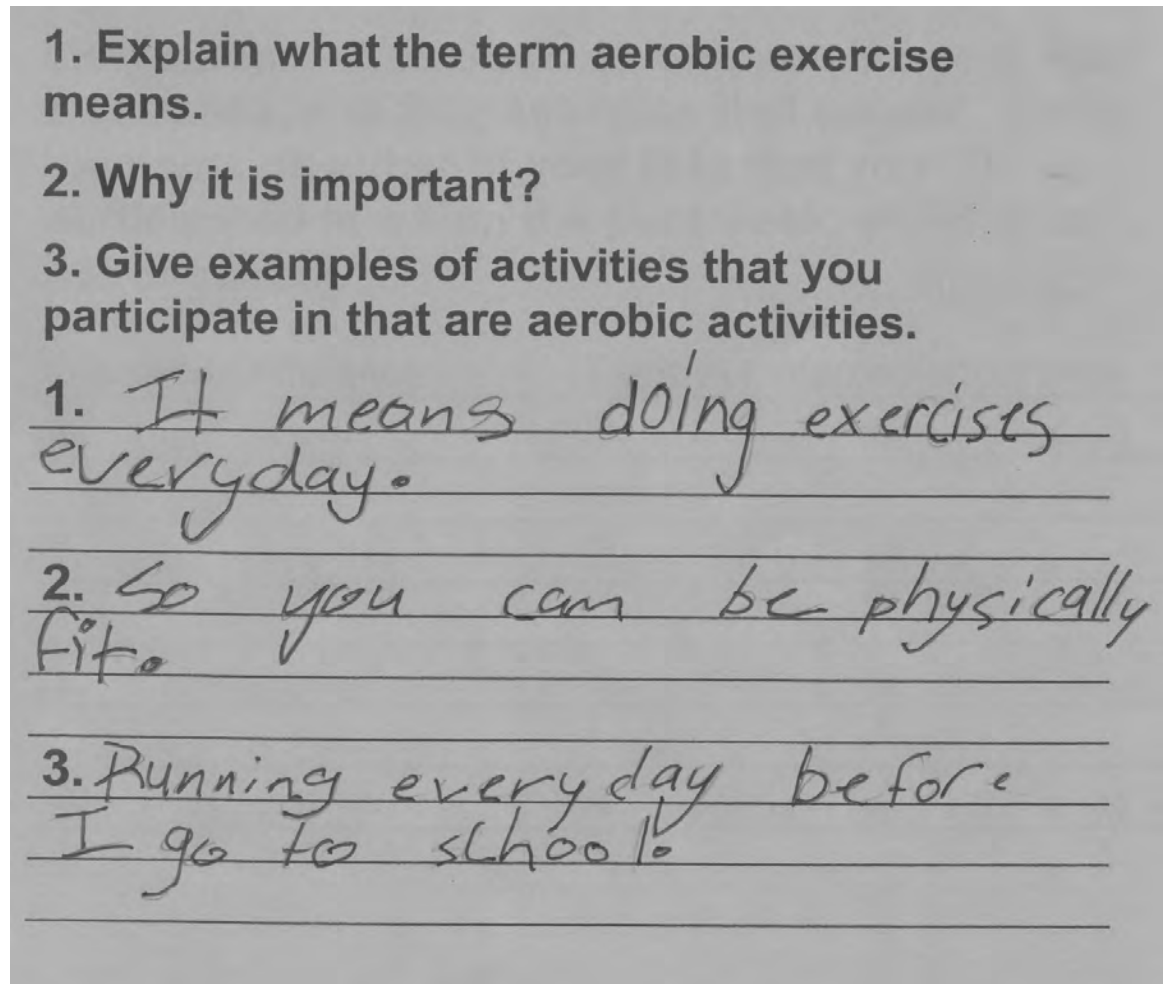 1. Explain what the term aerobic exercise
means.
2. Why it is important?
3. Give examples of activities that you
participate in that are aerobic activities.
1. It means doing exercises
everyday.
2. So you can be physically
fit.
3. Running everyday before
I go to school.